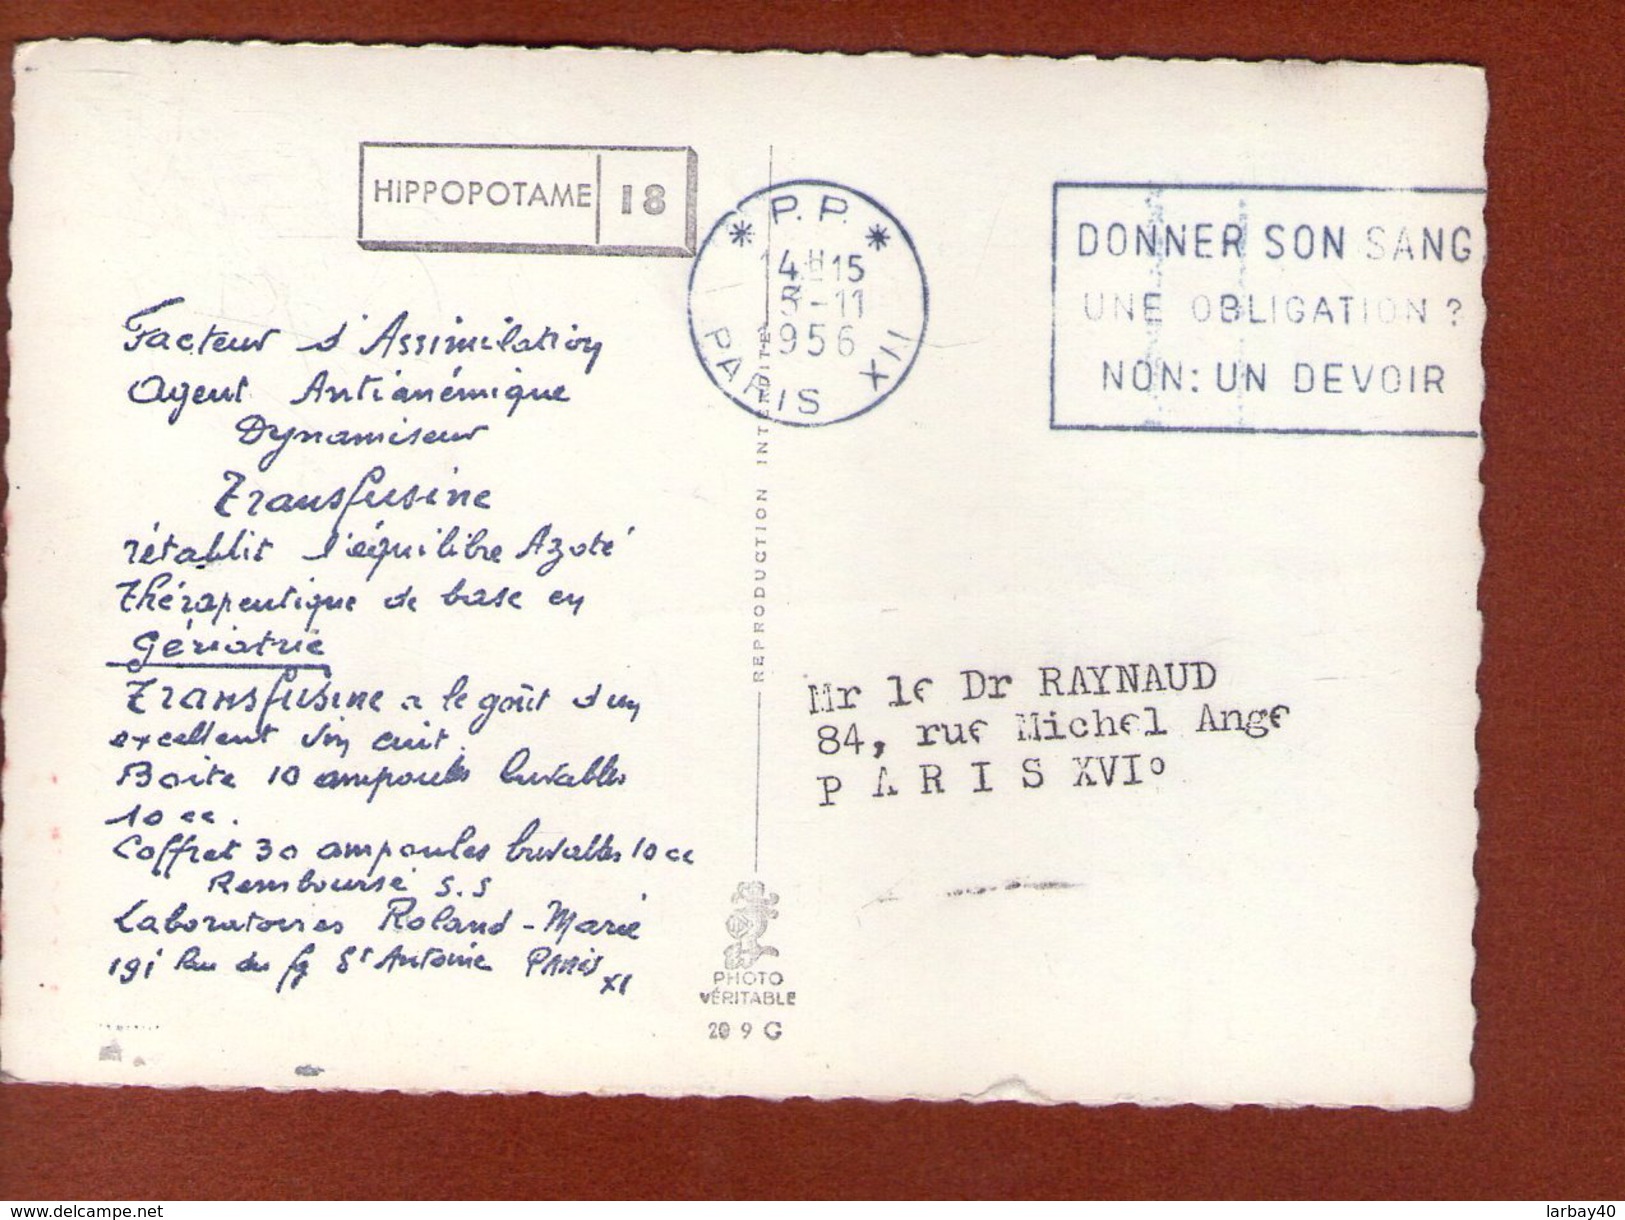 HIPPOPOTAME 18
Facteur d'Assimilation
Agent Antianémique
Dynamiseur
Transfusine
rétablit l'équilibre Azoté
Thérapeutique de base en
Gériatrie
Transfusine a le goût d'un
excellent vin cuit.
Boite 10 ampoules buvables
10 cc.
Coffret 30 ampoules buvables 10 cc
Remboursé S.S
Laboratoires Roland-Marie
191 Rue du fg St Antoine PARIS XI
REPRODUCTION INTERDITE
PHOTO
VÉRITABLE
209 G
* P.P. *
14H15
-11
1956
PARIS XII
DONNER SON SANG
UNE OBLIGATION ?
NON: UN DEVOIR
Mr le Dr RAYNAUD
84, rue Michel Ange
P A R I S XVI°
www.delcampe.net
larbay40